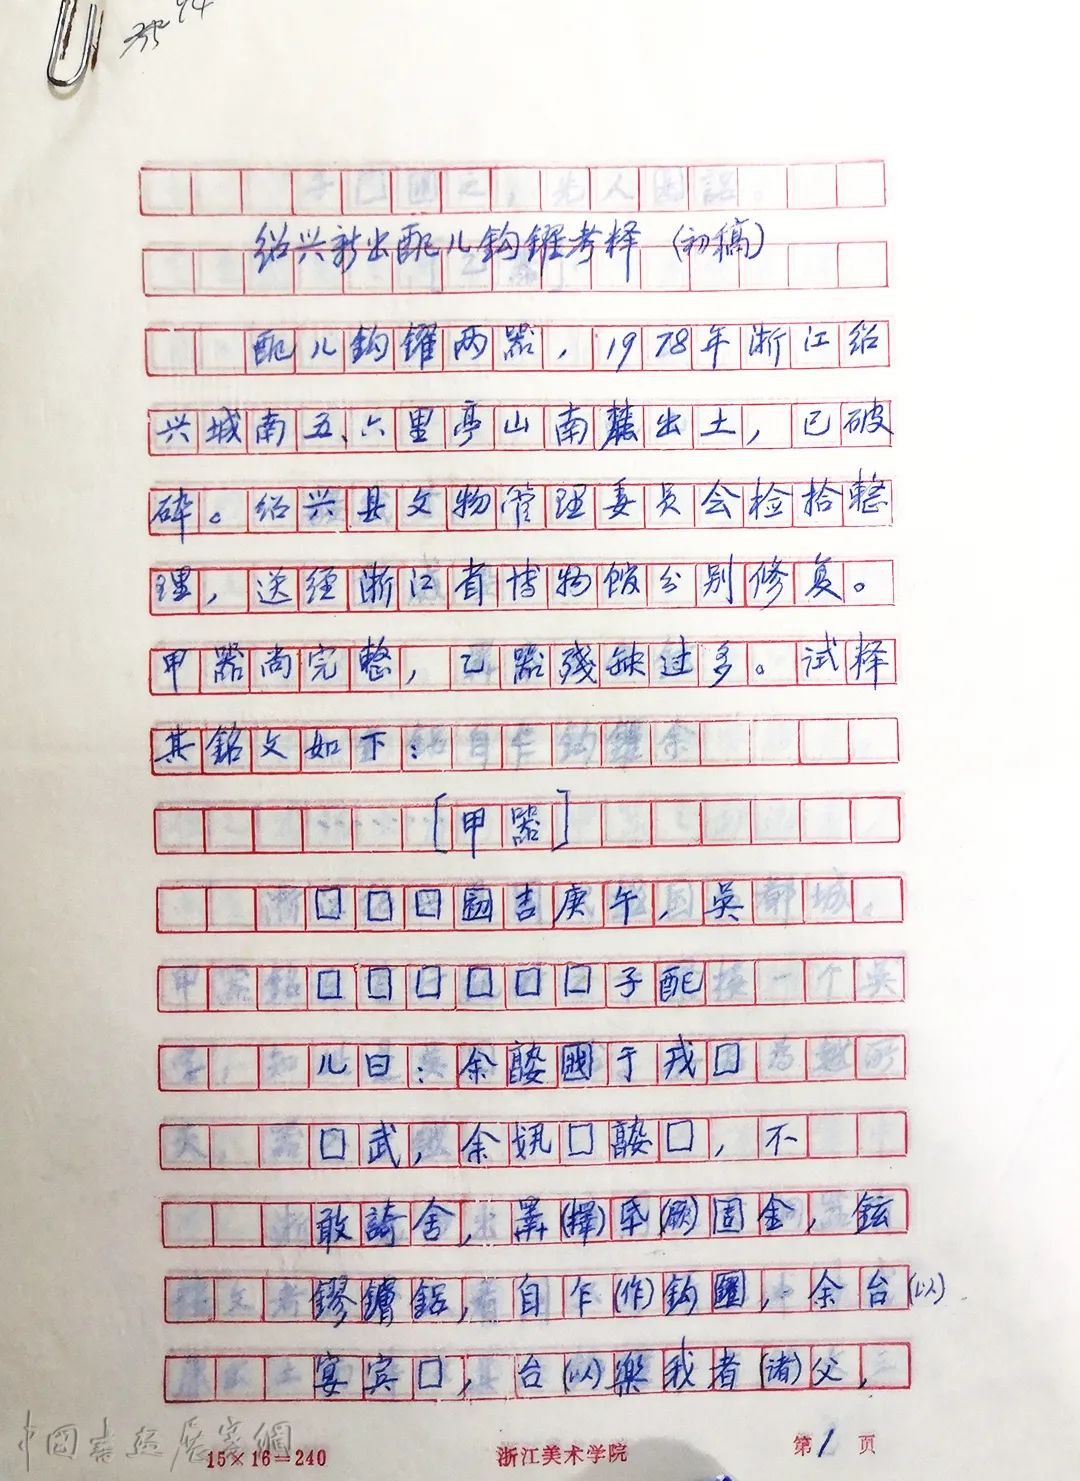 绍兴新出配儿鈎鑃考释（初稿）
配儿鈎鑃两器，1978年浙江绍
兴城南五、六里亭山南麓出土，已破
碎。绍兴县文物管理委员会检拾整
理，送经浙江省博物馆分别修复。
甲器尚完整，乙器残缺过多。试释
其銘文如下：
［甲器］
□□□初吉庚午，吳
□□□□□□子配
儿曰：余于戎□
□武，余□□，不
敢誇舍，（擇）氒（厥）吉金，鉉
鏐鏞鋁，自乍（作）鈎鑃，余台（以）
宴宾□，台（以）樂我者（诸）父，
15×16=240 浙江美术学院 第1页